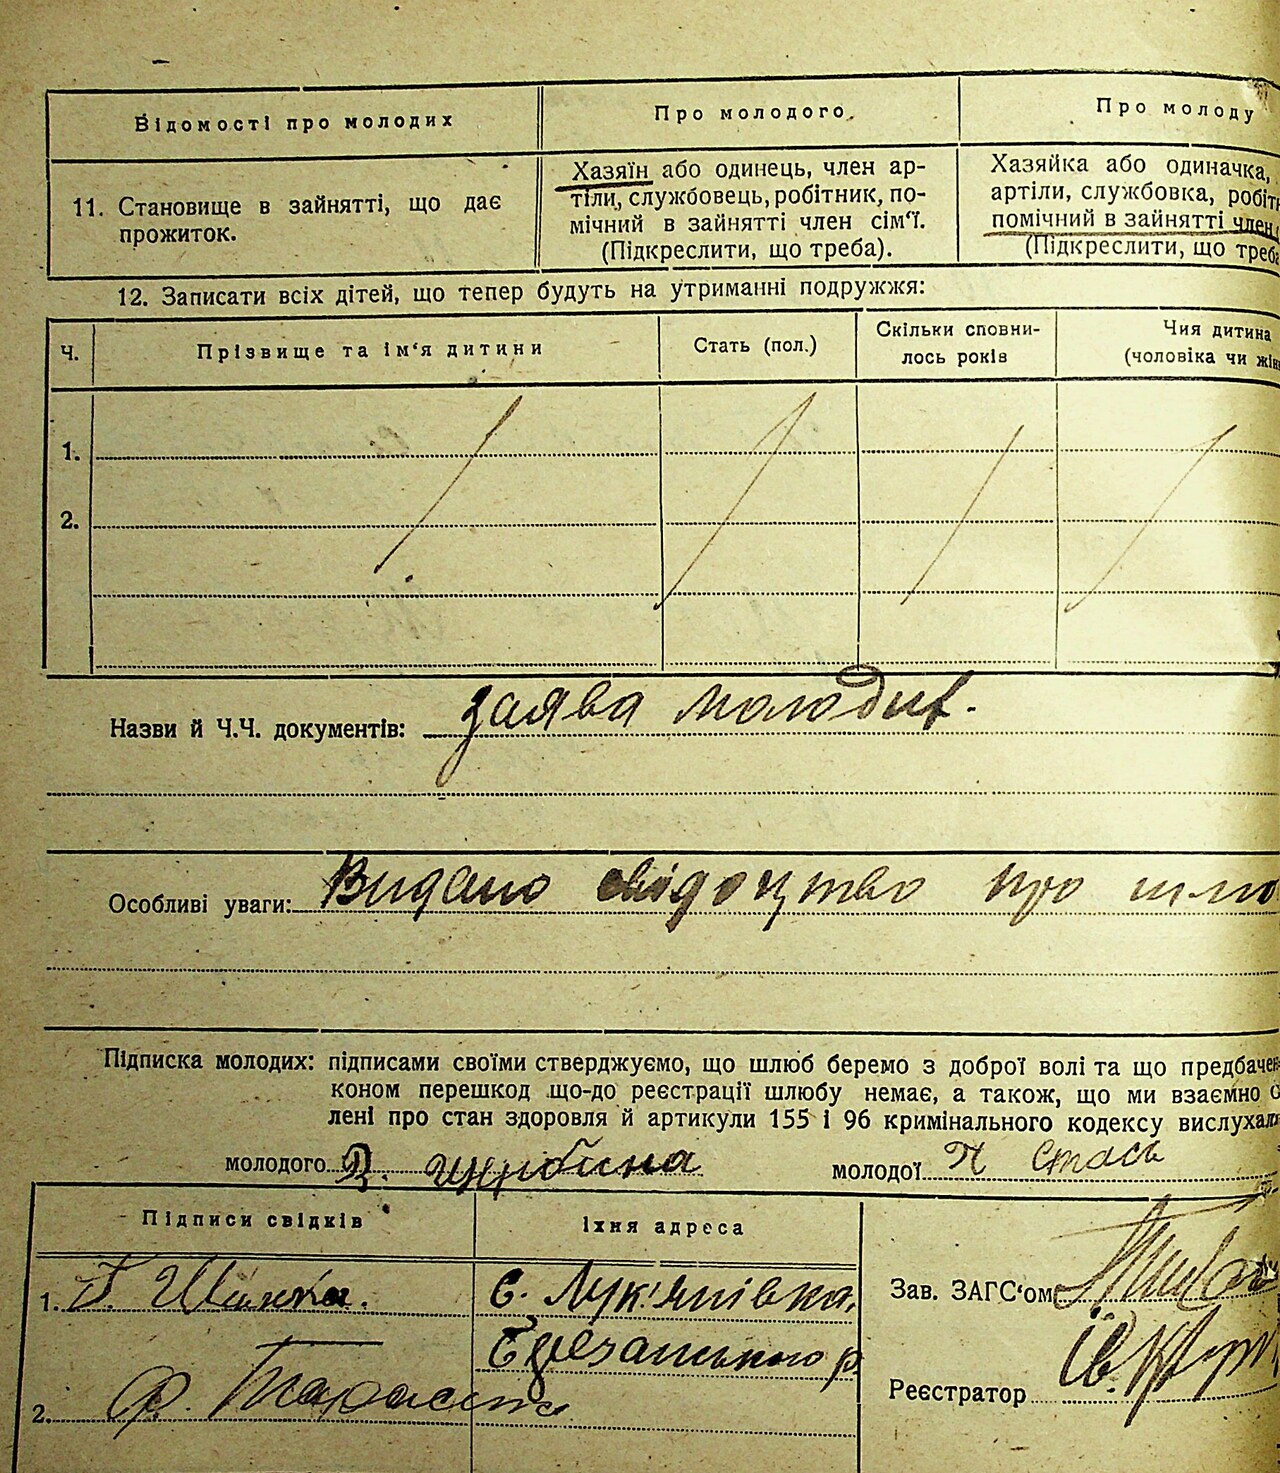 Відомості про молодих
Про молодого.
Про молоду
11. Становище в зайнятті, що дає
прожиток.
Хазяїн або одинець, член ар-
тіли, службовець, робітник, по-
мічний в зайнятті член сім'ї.
(Підкреслити, що треба).
Хазяйка або одиначка,
артіли, службовка, робіт
помічний в зайнятті член
(Підкреслити, що треба
12. Записати всіх дітей, що тепер будуть на утриманні подружжя:
Ч.
Прізвище та ім'я дитини
Стать (пол.)
Скільки сповни-
лось років
Чия дитина
(чоловіка чи жін
1.
2.
Назви й Ч.Ч. документів: заява молодих.
Особливі уваги: Видано свідоцтво про шлю
Підписка молодих: підписами своїми стверджуємо, що шлюб беремо з доброї волі та що предбачен
коном перешкод що-до реєстрації шлюбу немає, а також, що ми взаємно
лені про стан здоровля й артикули 155 і 96 кримінального кодексу вислухал
молодого Щербина
молодої П Стась
Підписи свідків
Їхня адреса
1.
с. Лук'янівка.
Березанського р.
2. Ф.
Зав. ЗАГС'ом
Реєстратор